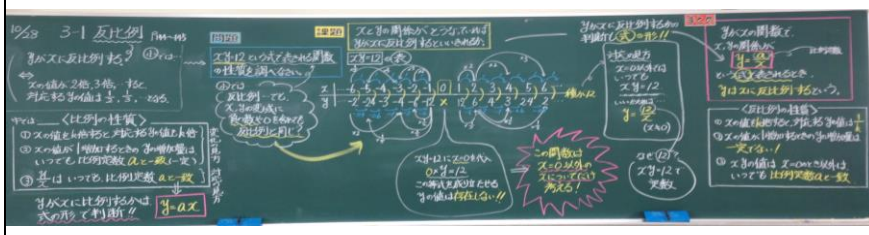 10/28 3-1 反比例 P144~145
yがxに反比例する
⇔
xの値が2倍,3倍,…すると
対応するyの値は1/2,1/3,…となる。
<比例の性質>
① xの値をk倍すると対応するyの値もk倍
② xの値が1増加するときのyの増加量は
いつでも比例定数aと一致(一定)
③ y/xはいつでも比例定数aと一致
yがxに比例するかは
式の形で判断!!
y=ax
問題
xy=12という式で表される関数
の性質を調べなさい。
反比例って、
反比例と同じ?
課題
xとyの関係がどうなっていれば
yがxに反比例するといえるか。
xy=12の表
x -6 -5 -4 -3 -2 -1 0 1 2 3 4 5 6
y -2 -3 -4 -6 -12 × 12 6 4 3 2
積が12
xy=12にx=0を代入
0×y=12
この等式を成り立たせる
yの値は存在しない!!
この関数は
x=0以外の
xについてだけ
考える!
yがxに反比例するかの
判断も式の形!!
対応の見方
x=0以外では
いつでも
xy=12
y=12/x
(x≠0)
xy=12で
定数
yがxの関数で、
x,yの関係が
y=a/x
比例定数
という式で表されるとき、
yはxに反比例するという。
<反比例の性質>
① xの値をk倍すると対応するyの値は1/k
② xの値が1増加するときのyの増加量は
一定でない!
③ xyの値はx=0のとき以外は
いつでも比例定数aと一致